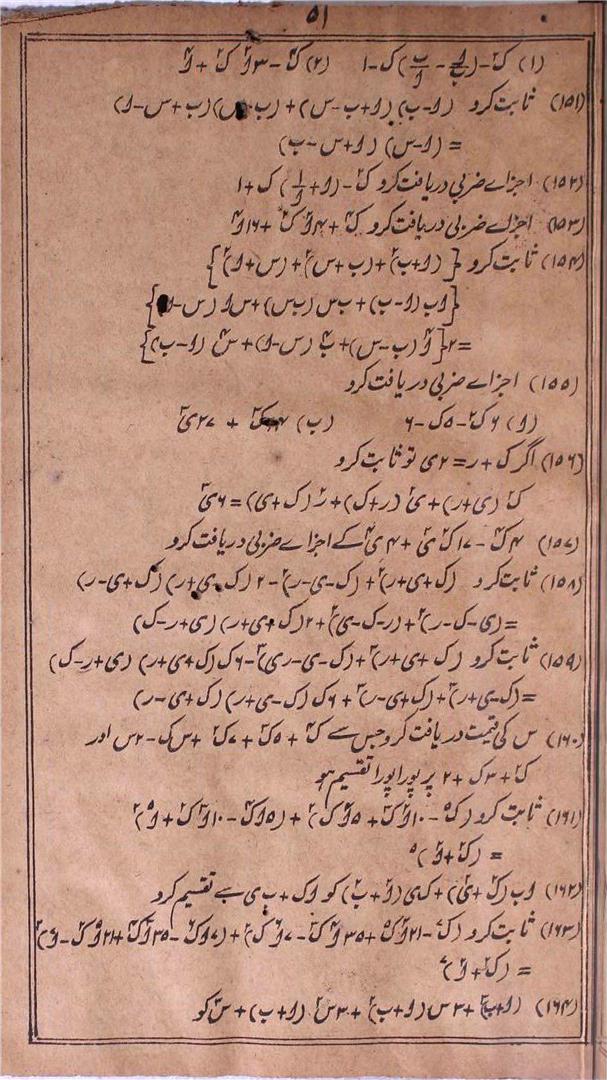 ۵۱
(۱) ک۲-(ب/ا - ا/ب)ک-۱ (۲) ک۴-۳ا۲ک۲+ا۴
(۱۵۱) ثابت کرو (ا-ب)(ا+ب-س)+(ب-س)(ب+س-ا)
=(ا-س)(ا+س-ب)
(۱۵۲) اجزاے ضربی دریافت کرو ک۲-(ا+۱/ا)ک+۱
(۱۵۳) اجزاے ضربی دریافت کرو ک۴+۴ا۲ک۲+۱۶ا۴
(۱۵۴) ثابت کرو {(ا+ب)۲+(ب+س)۲+(س+ا)۲}
{اب(ا-ب)+ب س(ب-س)+س ا(س-ا)}
=۲{ا۴(ب-س)+ب۴(س-ا)+س۴(ا-ب)}
(۱۵۵) اجزاے ضربی دریافت کرو
(ا) ۶ک۲-۵ک-۶ (ب) ۶۴ک۳+۲۷ی۳
(۱۵۶) اگر ک+ر=۲ی تو ثابت کرو
ک۲(ی+ر)+ی۲(ر+ک)+ر۲(ک+ی)=۶ی۳
(۱۵۷) ۴ک۴-۱۷ک۲ی۲+۴ی۴ کے اجزاے ضربی دریافت کرو
(۱۵۸) ثابت کرو (ک+ی+ر)۲+(ک-ی-ر)۲-۲(ک-ی+ر)(ک+ی-ر)
=(ی-ک-ر)۲+(ر-ک-ی)۲+۲(ک+ی+ر)(ی+ر-ک)
(۱۵۹) ثابت کرو (ک+ی+ر)۳+(ک-ی-ر)۳-۶ک(ک+ی+ر)(ی+ر-ک)
=(ک-ی+ر)۳+(ک+ی-ر)۳+۶ک(ک-ی+ر)(ک+ی-ر)
(۱۶۰) س کی قیمت دریافت کرو جس سے ک۴+۵ک۳+۷ک۲+س ک-۲س اور
ک۲+۳ک+۲ پر پورا پورا تقسیم ہو
(۱۶۱) ثابت کرو (ک۵-۱۰ا۲ک۳+۵ا۴ک)۲+(۵اک۴-۱۰ا۳ک۲+ا۵)۲
=(ک۲+ا۲)۵
(۱۶۲) اب(ک۲+ی۲)+ک ی(ا۲+ب۲) کو اک+ب ی سے تقسیم کرو
(۱۶۳) ثابت کرو (ک۷-۲۱ا۲ک۵+۳۵ا۴ک۳-۷ا۶ک)۲+(۷اک۶-۳۵ا۳ک۴+۲۱ا۵ک۲-ا۷)۲
=(ک۲+ا۲)۷
(۱۶۴) (ا+ب)۳+۳س(ا+ب)۲+۳س۲(ا+ب)+س۳ کو